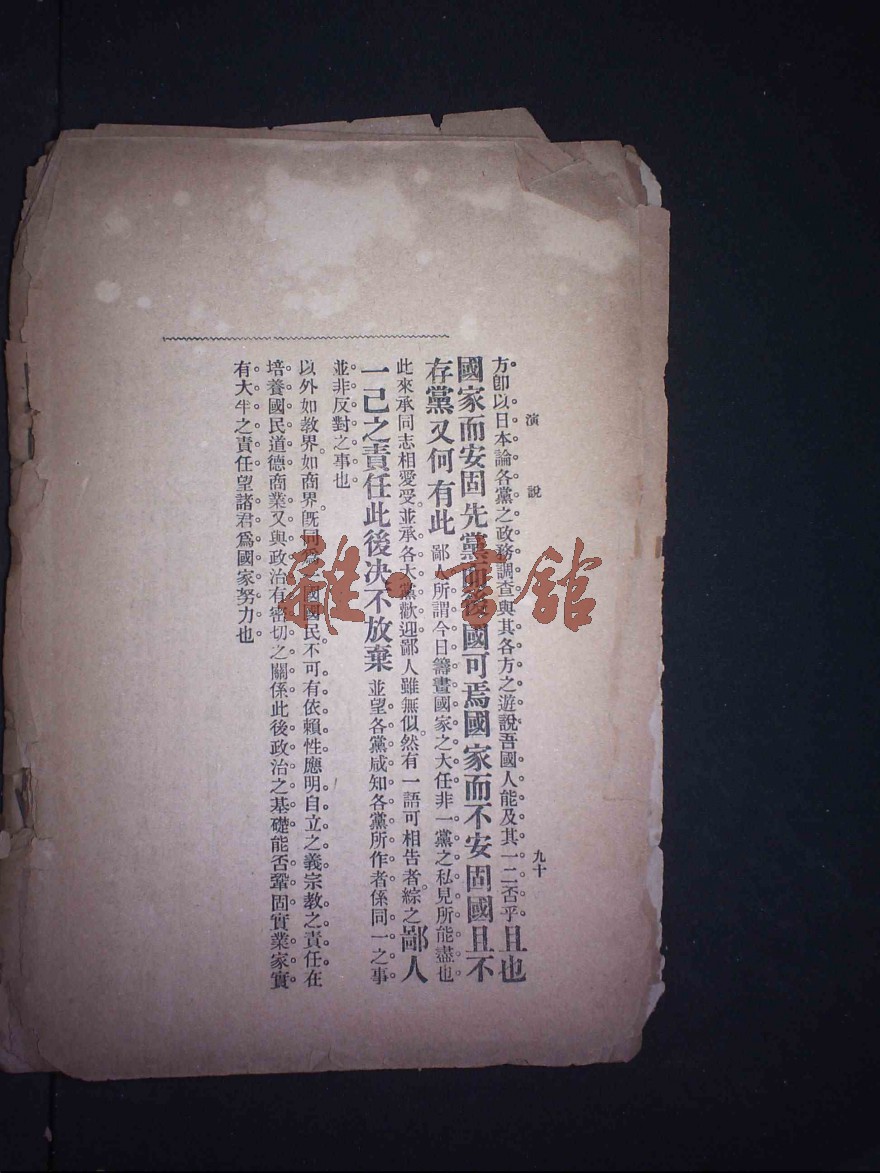 演說
九十
方卽以日本論各黨之政務調查與其各方之遊說吾國人能及其一二否乎且也
國家而安固先黨而後國可焉國家而不安固國且不
存黨又何有此鄙人所謂今日籌畫國家之大任非一黨之私見所能盡也
此來承同志相愛受並承各大黨歡迎鄙人雖無似然有一語可相告者綜之鄙人
一己之責任此後决不放棄並望各黨咸知各黨所作者係同一之事
並非反對之事也
以外如教界如商界旣同爲一國國民不可有依賴性應明自立之義宗教之責任在
培養國民道德商業又與政治有密切之關係此後政治之基礎能否鞏固實業家實
有大半之責任望諸君爲國家努力也
雜·書館